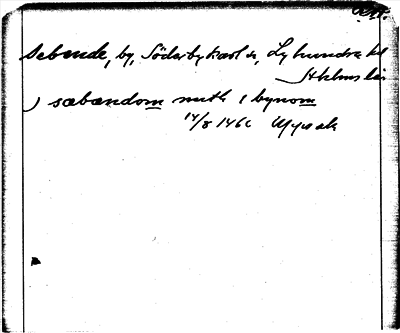 Sebende, by, Söderbykarl sn, Lyhundra hd
Sthlms län
) sæbændom muth i bynom
14/8 1466